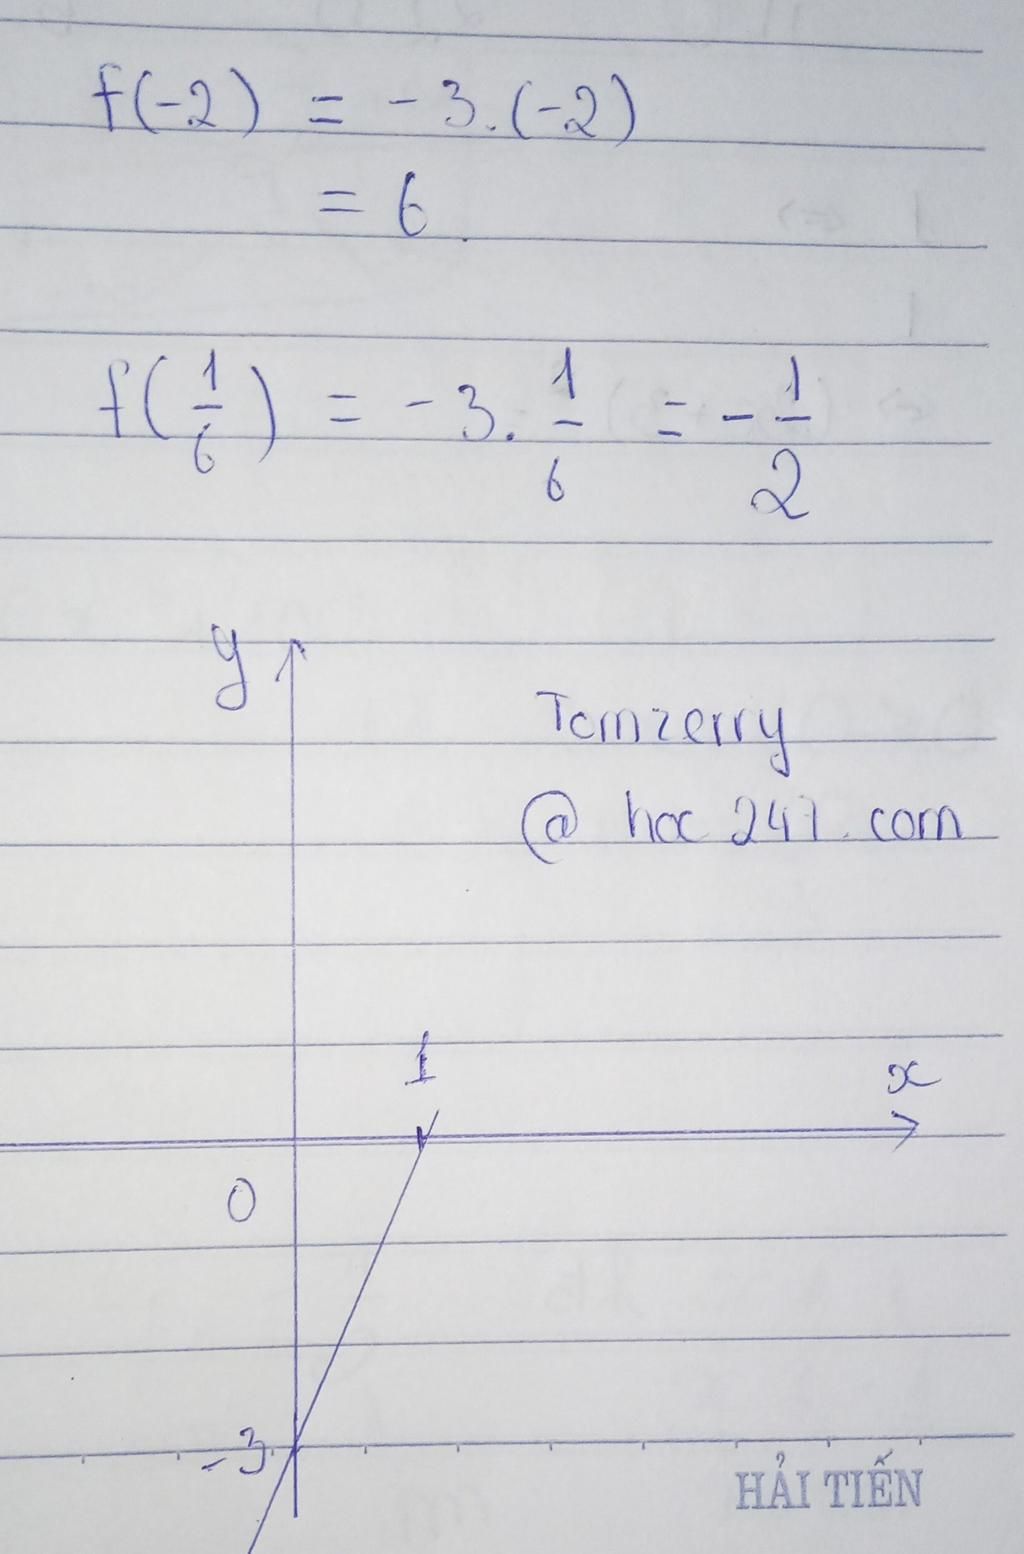 f(-2) = -3.(-2)
= 6
f(1/6) = -3. 1/6 = -1/2
y
Tomzerry
@ hoc 247. com
1
x
0
-3
HẢI TIẾN